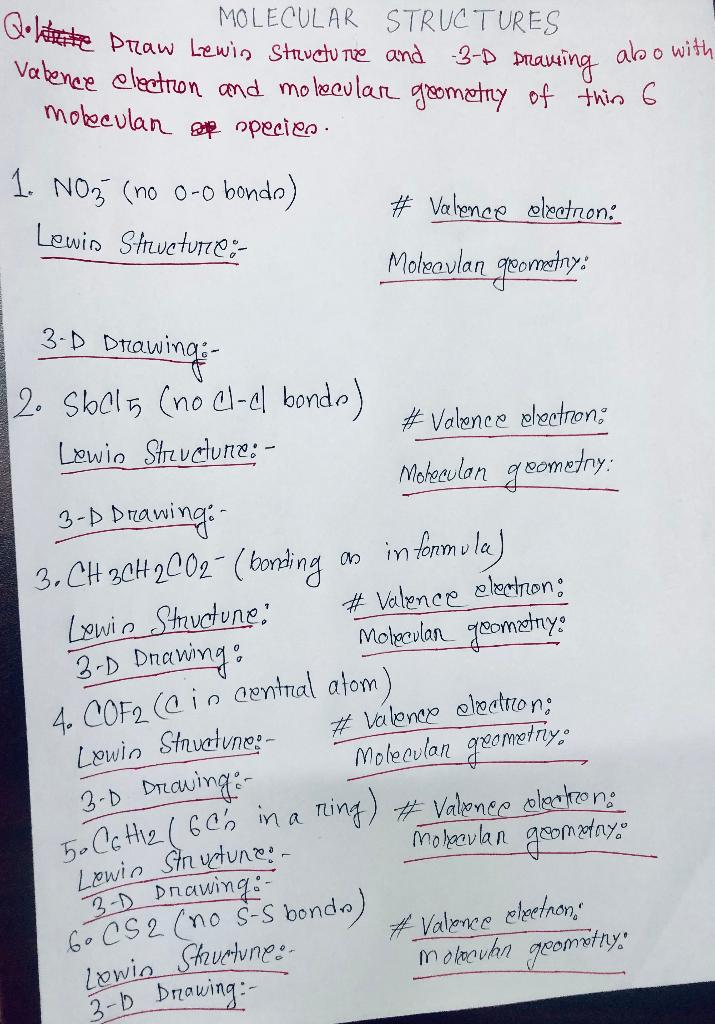 MOLECULAR STRUCTURES
Q. Draw Lewis Structure and 3-D Drawing also with
Valence electron and molecular geometry of this 6
molecular species.
1. NO3- (no O-O bonds)
# Valence electron:
Lewis Structure:-
Molecular geometry:
3-D Drawing:-
2. SbCl5 (no Cl-Cl bonds)
# Valence electron:
Lewis Structure:-
Molecular geometry:
3-D Drawing:-
3. CH3CH2CO2- (bonding as in formula)
# Valence electron:
Lewis Structure:
Molecular geometry:
3-D Drawing:
4. COF2 (C is central atom)
# Valence electron:
Lewis Structure:-
Molecular geometry:
3-D Drawing:-
5. C6H12 (6 C's in a ring)
# Valence electron:
Lewis Structure:-
Molecular geometry:
3-D Drawing:-
6. CS2 (no S-S bonds)
# Valence electron:
Lewis Structure:-
Molecular geometry:
3-D Drawing:-